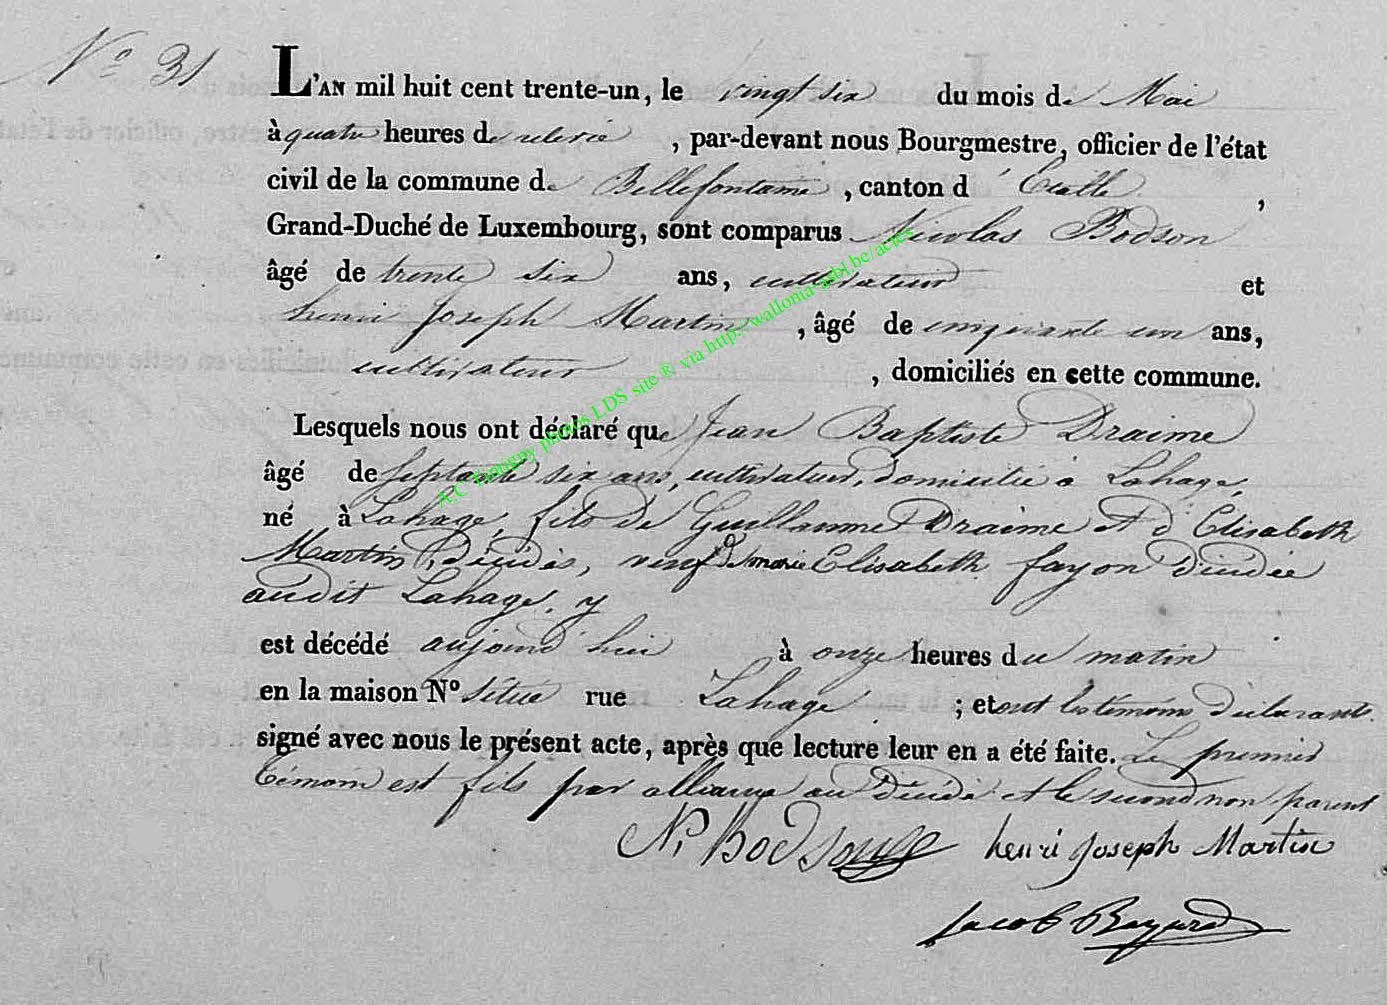 N° 31
L'AN mil huit cent trente-un, le vingt six du mois de Mai
à quatre heures de relevée, par-devant nous Bourgmestre, officier de l'état
civil de la commune de Bellefontaine, canton d'Etalle,
Grand-Duché de Luxembourg, sont comparus Nicolas Bodson
âgé de trente six ans, cultivateur et
henri Joseph Martin, âgé de cinquante un ans,
cultivateur, domiciliés en cette commune.
Lesquels nous ont déclaré que Jean Baptiste Draime
âgé de septante six ans, cultivateur, domicilié à Lahage,
né à Lahage, fils de Guillaume Draime et d'Elisabeth
Martin, décédés, veuf de marie Elisabeth fayon décédée
audit Lahage, y
est décédé aujourd'hui à onze heures du matin
en la maison N° située rue Lahage ; et ont les témoins déclarants
signé avec nous le présent acte, après que lecture leur en a été faite. Le premier
témoin est fils par alliance au décédé et le second non parent
N. Bodson henri Joseph Martin
Jacob Bayard
A.C. Tintigny photos LDS site ® via http://wallonia-asbl.be/actes